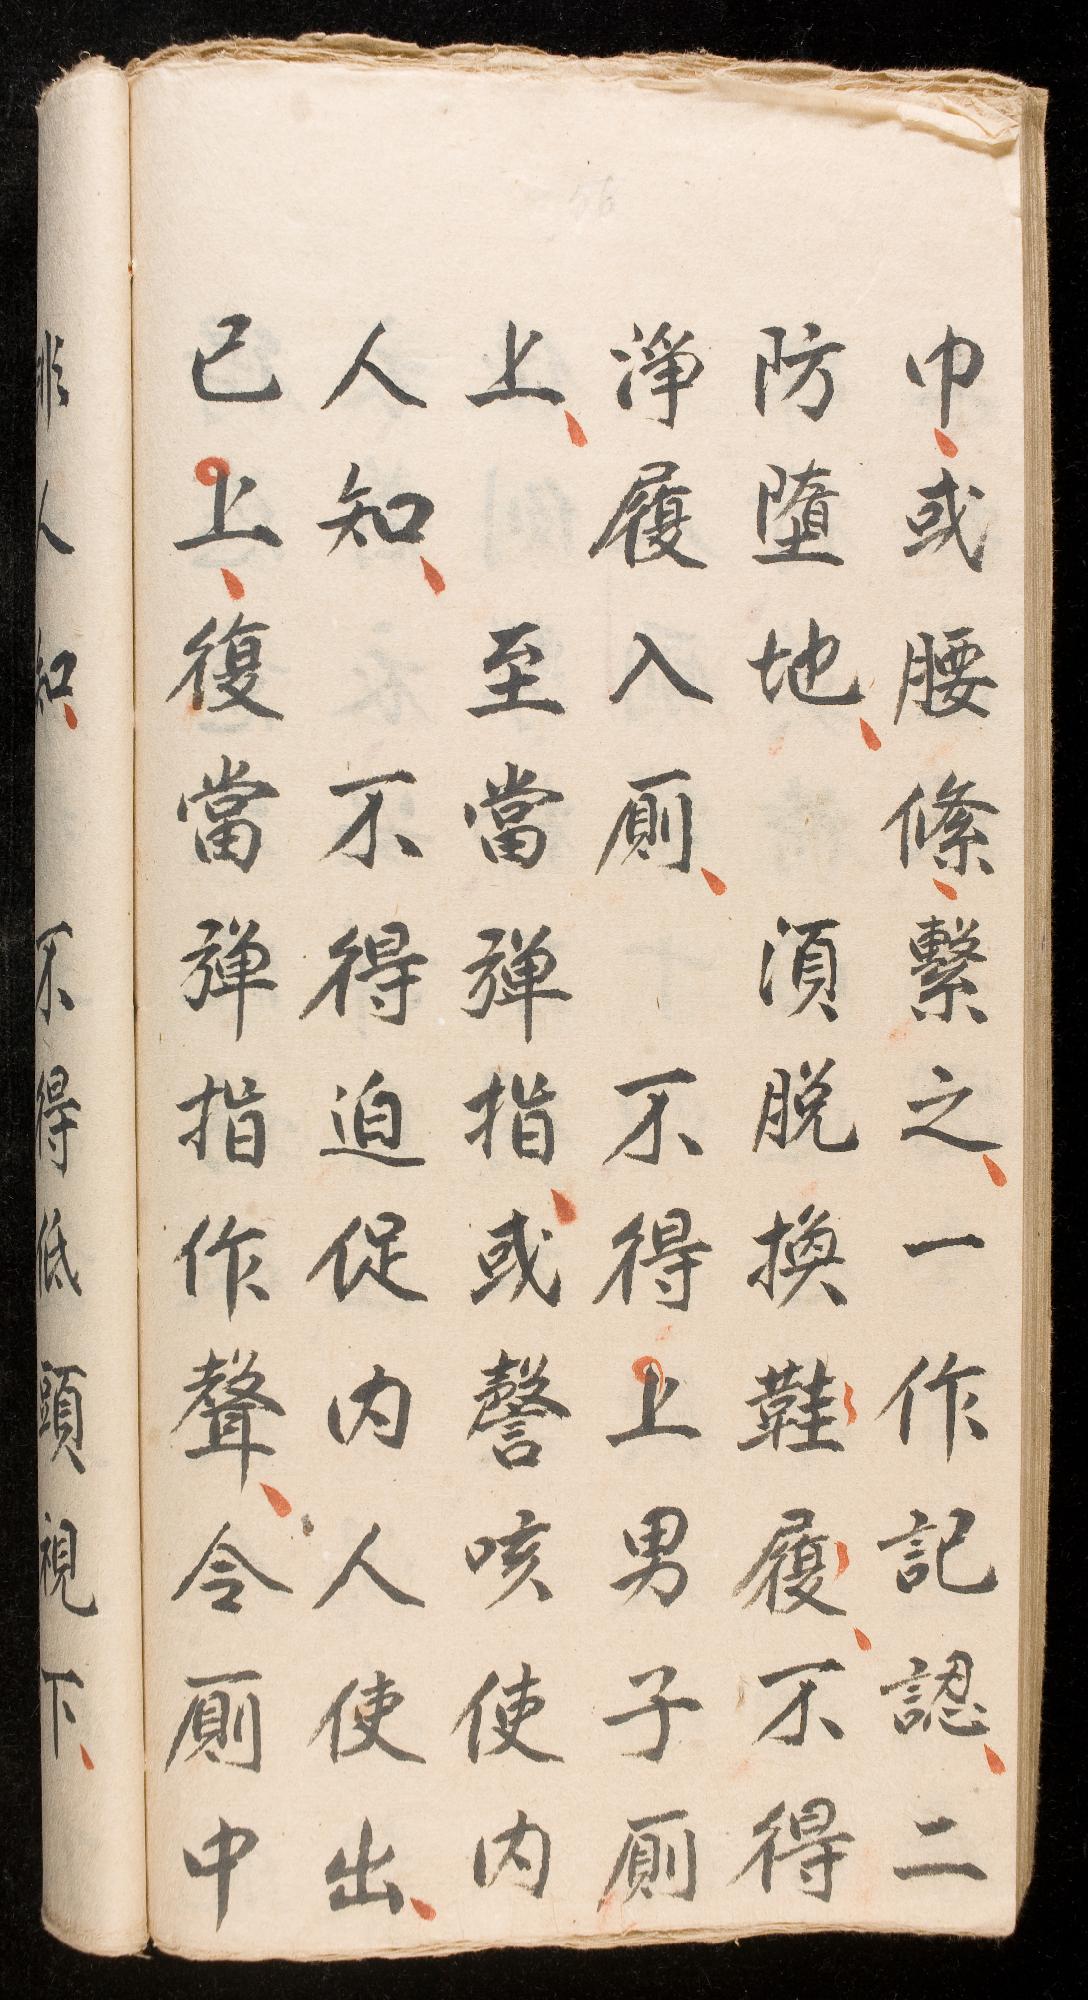 巾、或腰絛、繫之、一作記認、二
防墮地、　須脱換鞋履、不得
淨履入厠、　不得上男子厠
上、　至當彈指、或謦咳使内
人知、　不得迫促内人使出、
已上、復當彈指作聲、令厠中
非人知、　不得低頭視下、